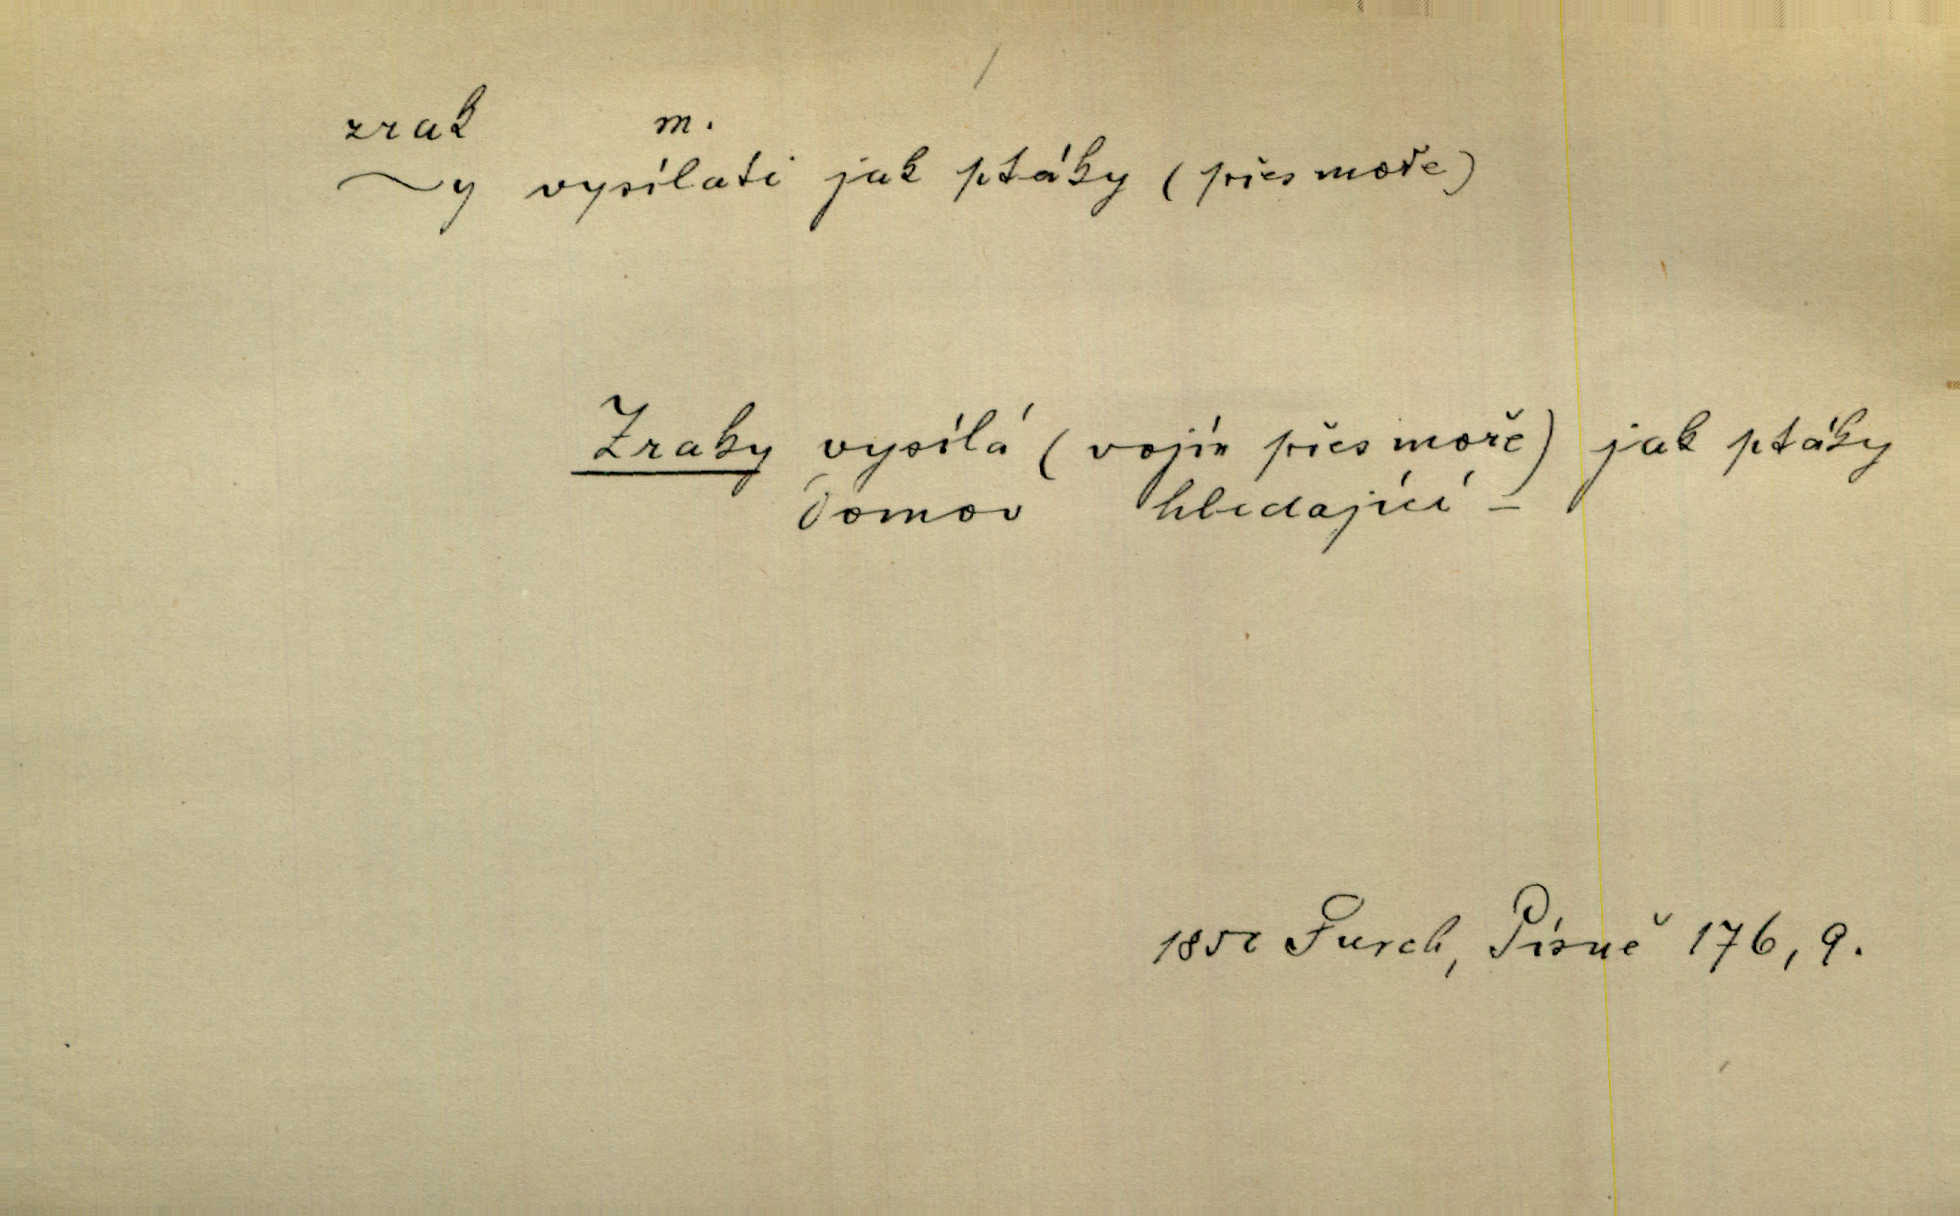 zrak m.
~y vysílati jak ptáky (přes moře)
Zraky vysílá (vojín přes moře) jak ptáky
domov hledající –
Furch, Písně 176, 9.